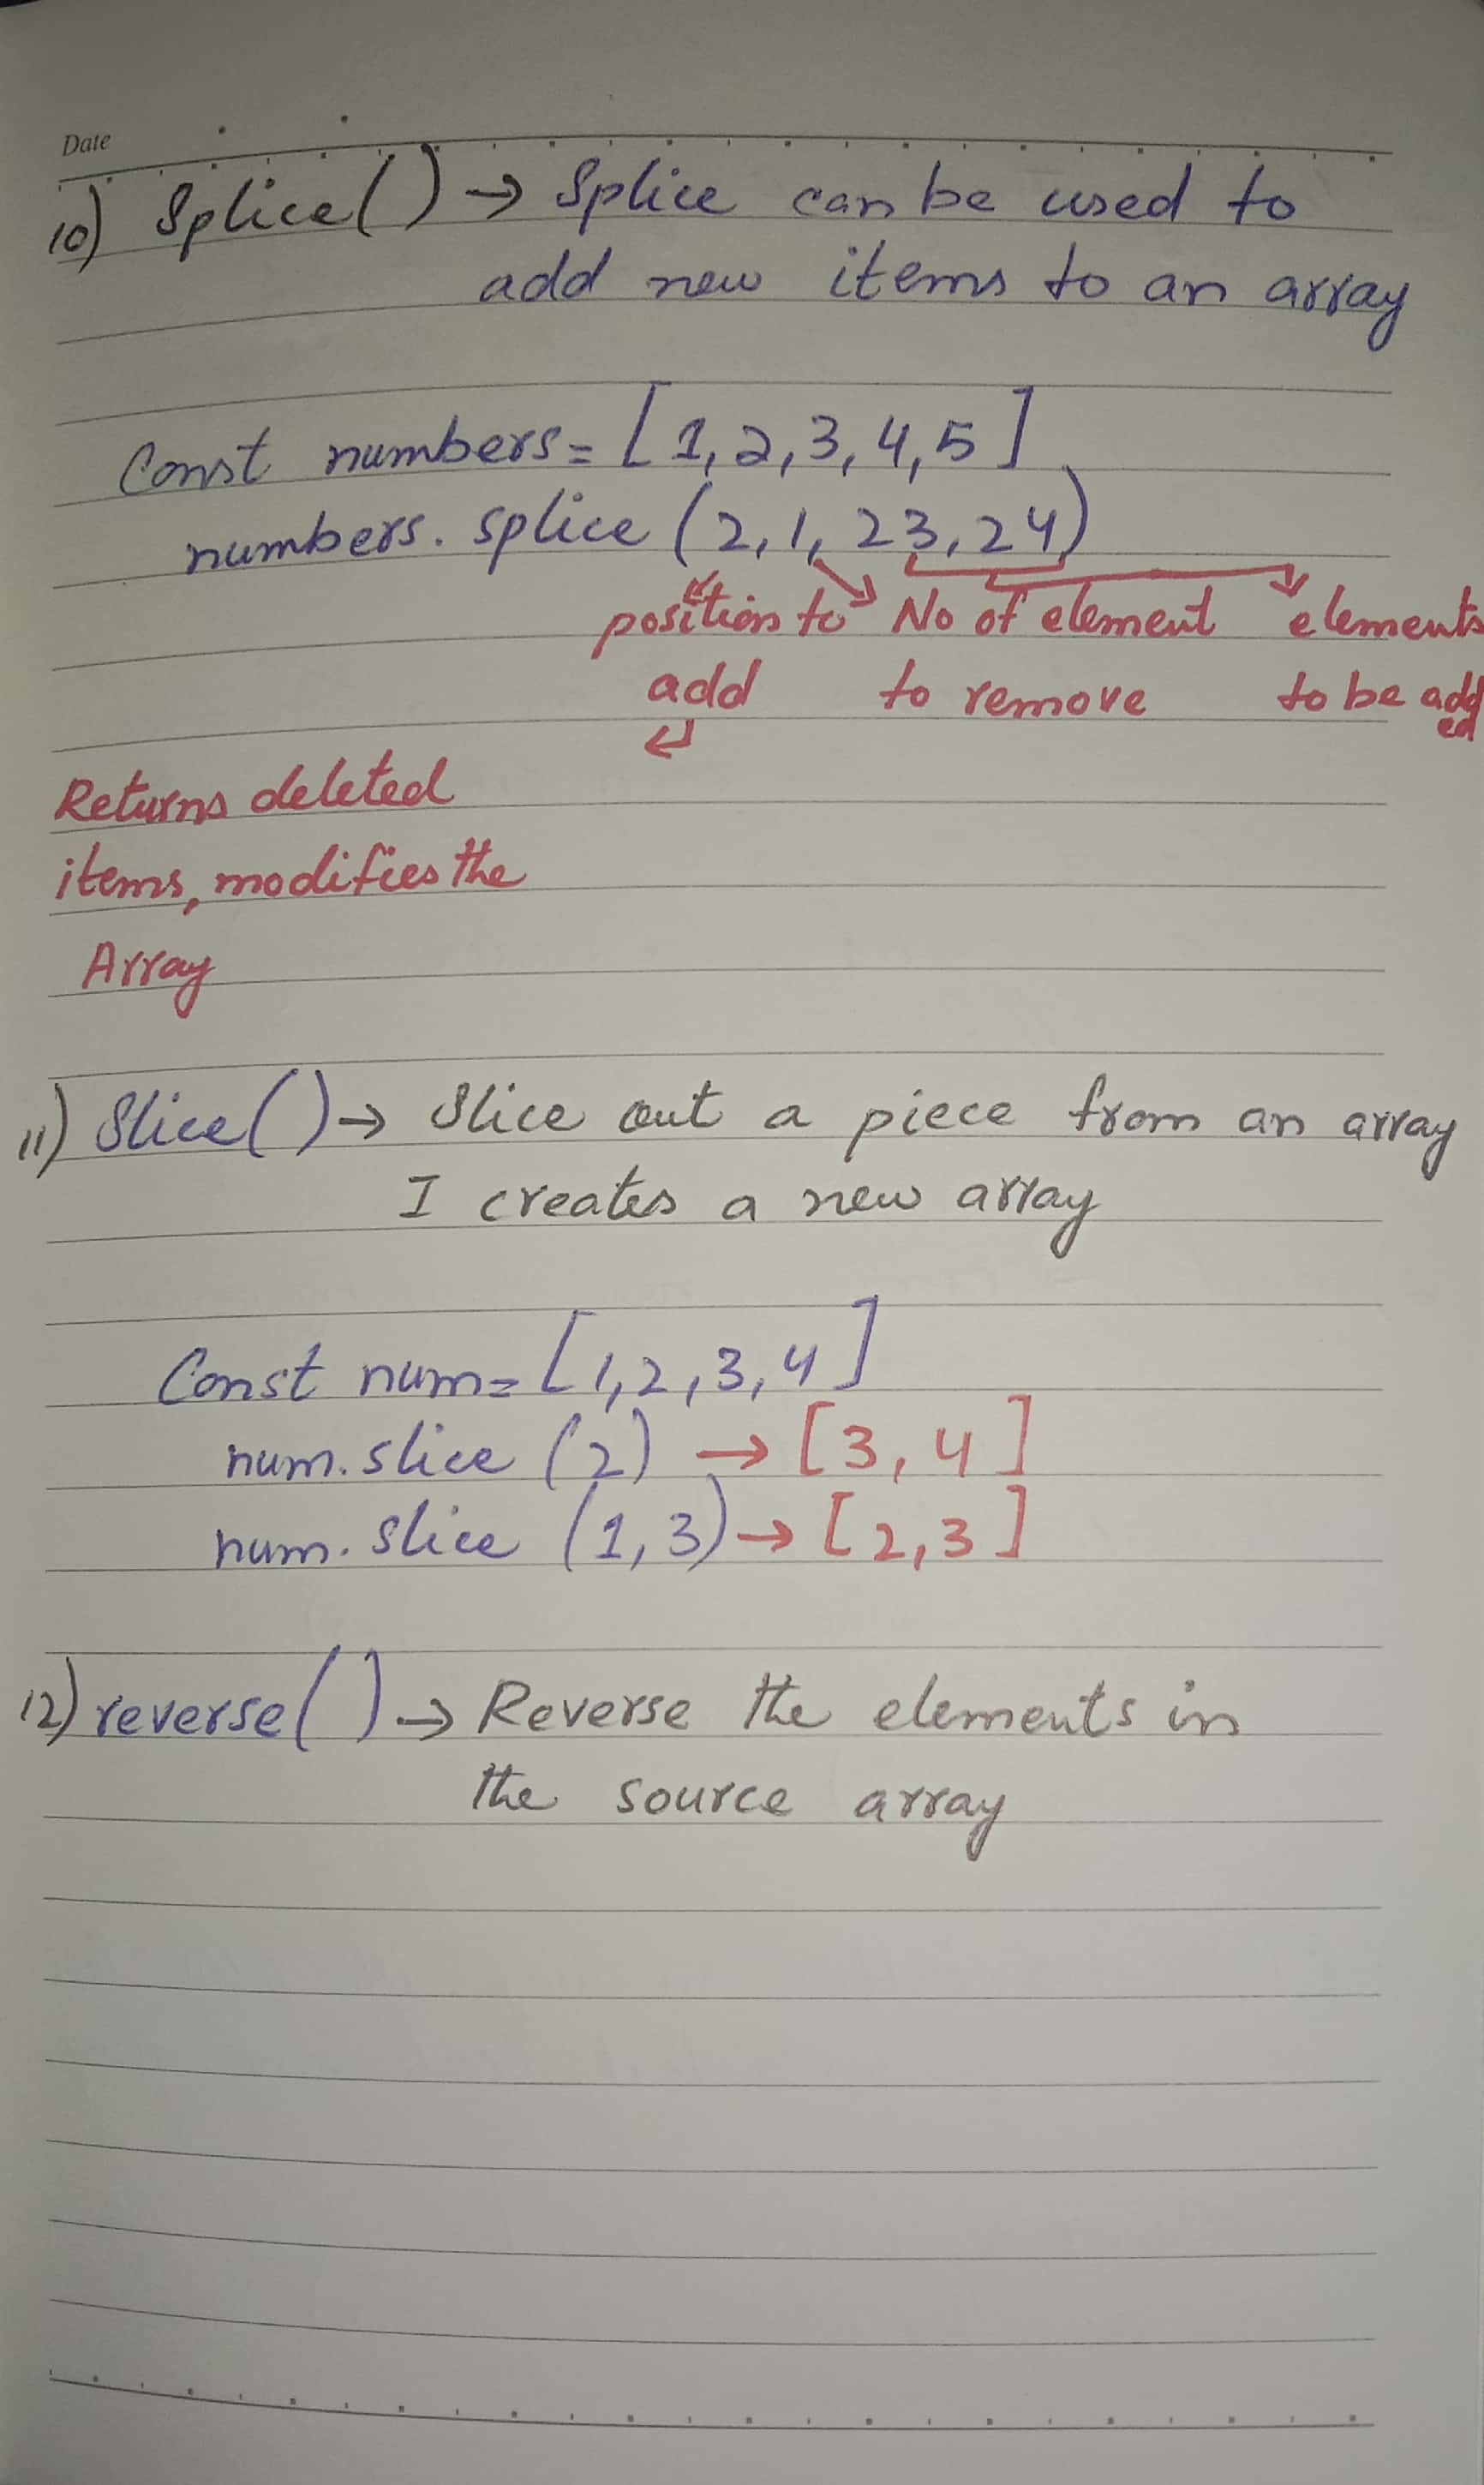 Date
10) Splice() → Splice can be used to
add new items to an array
Const numbers = [1, 2, 3, 4, 5]
numbers. splice (2, 1, 23, 24)
position to No of element elements
add to remove to be added
Returns deleted
items, modifies the
Array
11) Slice() → Slice out a piece from an array
I creates a new array
Const num = [1, 2, 3, 4]
num. slice (2) → [3, 4]
num. slice (1, 3) → [2, 3]
12) reverse() → Reverse the elements in
the source array